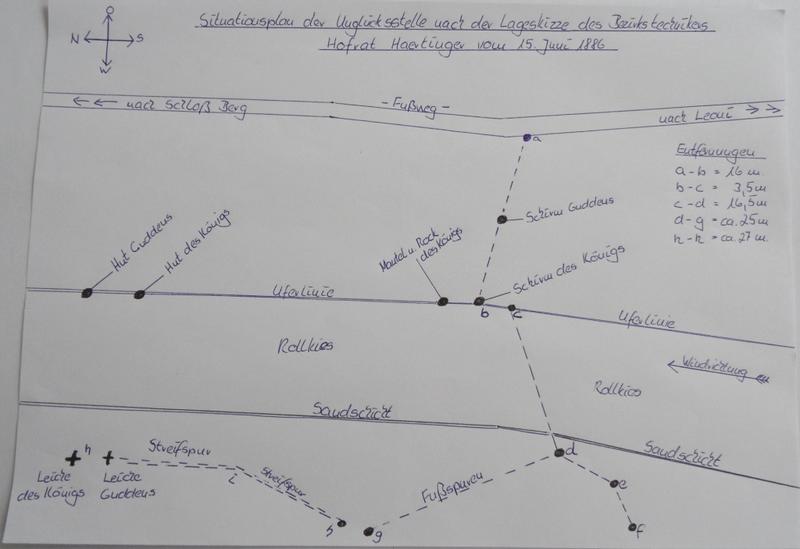 Situationsplan der Unglücksstelle nach der Lageskizze des Bezirkstechnikers
Hofrat Haertinger vom 15. Juni 1886
O
N
S
W
← ← nach Schloß Berg
- Fußweg -
nach Leoni >>
a
Entfernungen
a-b = 16 m
b-c = 3,5 m
c-d = 16,5 m
d-g = ca. 25 m
h-h = ca. 27 m.
Schirm Guddens
Hut Guddens
Hut des Königs
Mantel u. Rock
des Königs
Schirm des Königs
Uferlinie
b
c
Uferlinie
Rollkies
Windrichtung
Rollkies
Sandschicht
Sandschicht
h
Streifspur
i
Streifspur
Leiche
des Königs
Leiche
Guddens
Fußspuren
d
e
f
h
g